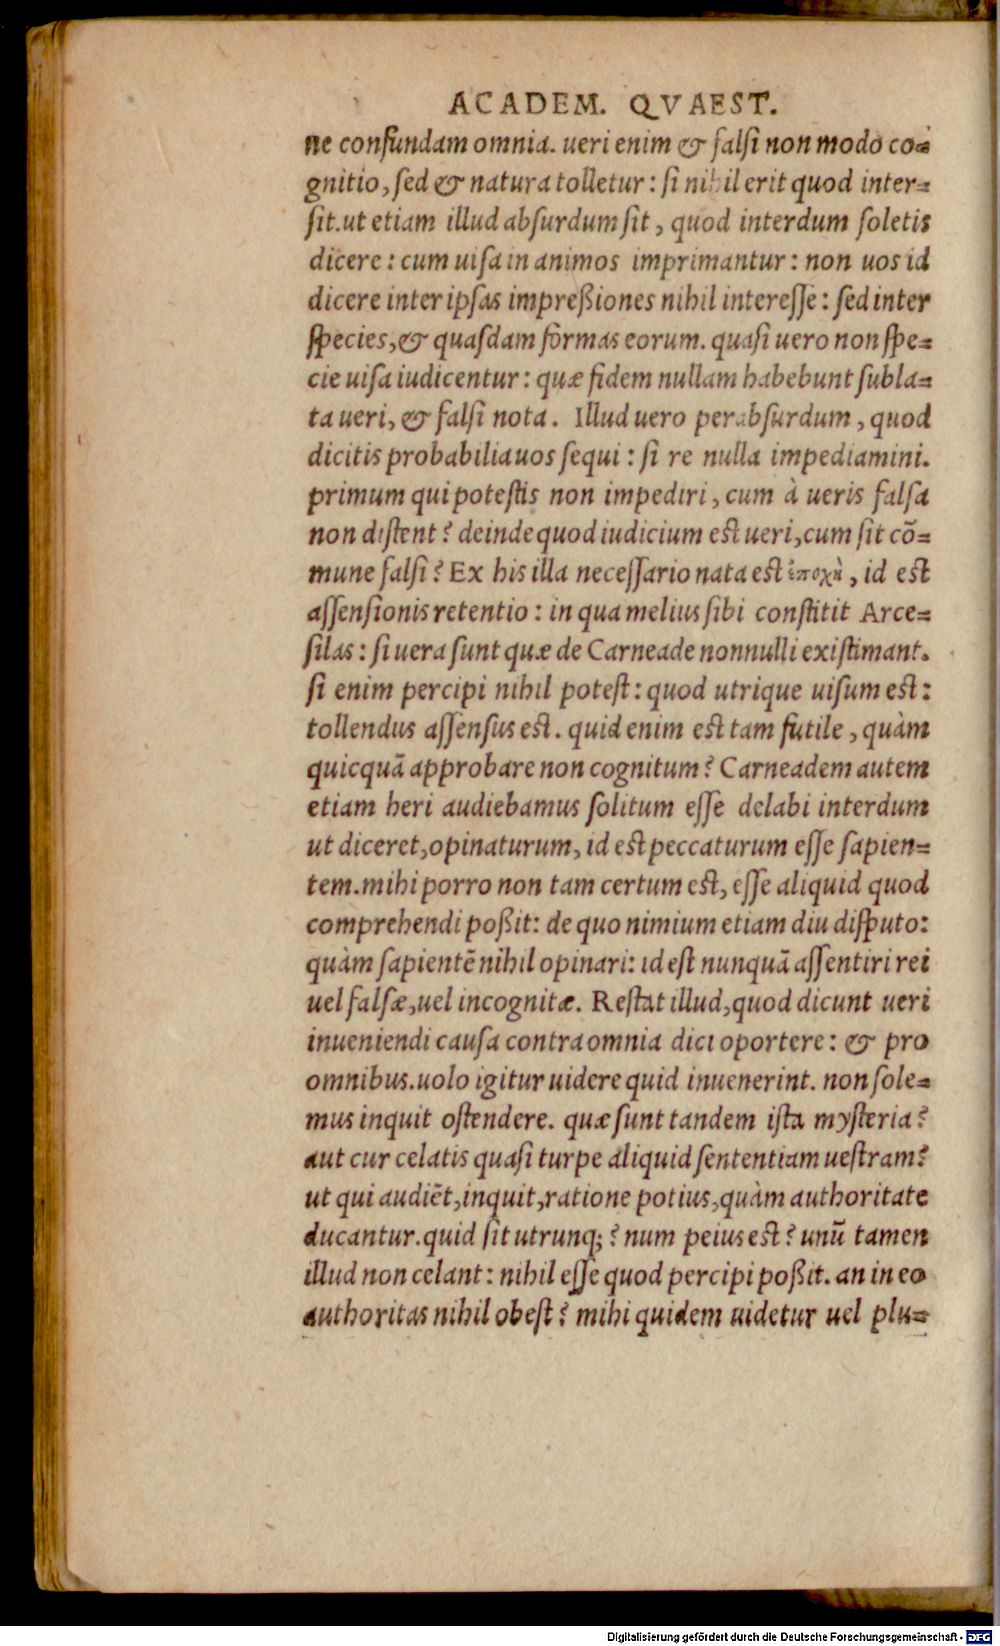 ACADEM. QVAEST.
ne confundam omnia. ueri enim & falsi non modo co=
gnitio, sed & natura tolletur: si nihil erit quod inter=
sit. ut etiam illud absurdum sit, quod interdum soletis
dicere: cum uisa in animos imprimantur: non uos id
dicere inter ipsas impreßiones nihil interesse: sed inter
species, & quasdam formas eorum. quasi uero non spe=
cie uisa iudicentur: quæ fidem nullam habebunt subla=
ta ueri, & falsi nota. Illud uero perabsurdum, quod
dicitis probabilia uos sequi: si re nulla impediamini.
primum qui potestis non impediri, cum à ueris falsa
non distent? deinde quod iudicium est ueri, cum sit cō=
mune falsi? Ex his illa necessario nata est ἐποχὴ, id est
assensionis retentio: in qua melius sibi constitit Arce=
silas: si uera sunt quæ de Carneade nonnulli existimant.
si enim percipi nihil potest: quod utrique uisum est:
tollendus assensus est. quid enim est tam futile, quàm
quicquā approbare non cognitum? Carneadem autem
etiam heri audiebamus solitum esse delabi interdum
ut diceret, opinaturum, id est peccaturum esse sapien=
tem. mihi porro non tam certum est, esse aliquid quod
comprehendi poßit: de quo nimium etiam diu disputo:
quàm sapientē nihil opinari: id est nunquā assentiri rei
uel falsæ, uel incognitæ. Restat illud, quod dicunt ueri
inueniendi causa contra omnia dici oportere: & pro
omnibus. uolo igitur uidere quid inuenerint. non sole=
mus inquit ostendere. quæ sunt tandem ista mysteria?
aut cur celatis quasi turpe aliquid sententiam uestram?
ut qui audiēt, inquit, ratione potius, quàm authoritate
ducantur. quid sit utrunq;? num peius est? unū tamen
illud non celant: nihil esse quod percipi poßit. an in eo
authoritas nihil obest? mihi quidem uidetur uel plu=
Digitalisierung gefördert durch die Deutsche Forschungsgemeinschaft - DFG